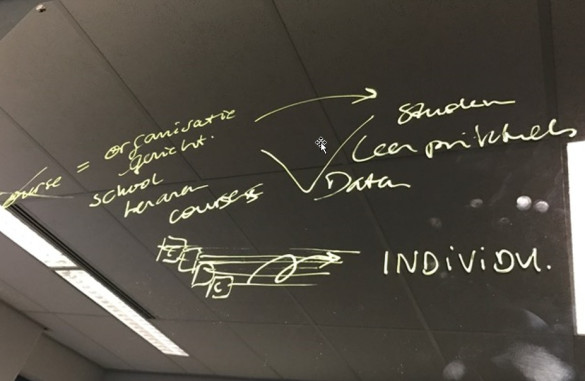 course = organisatie
gericht.
school
leraren
courses
Studen
Leerprikkels
Data
INDIVIDU.